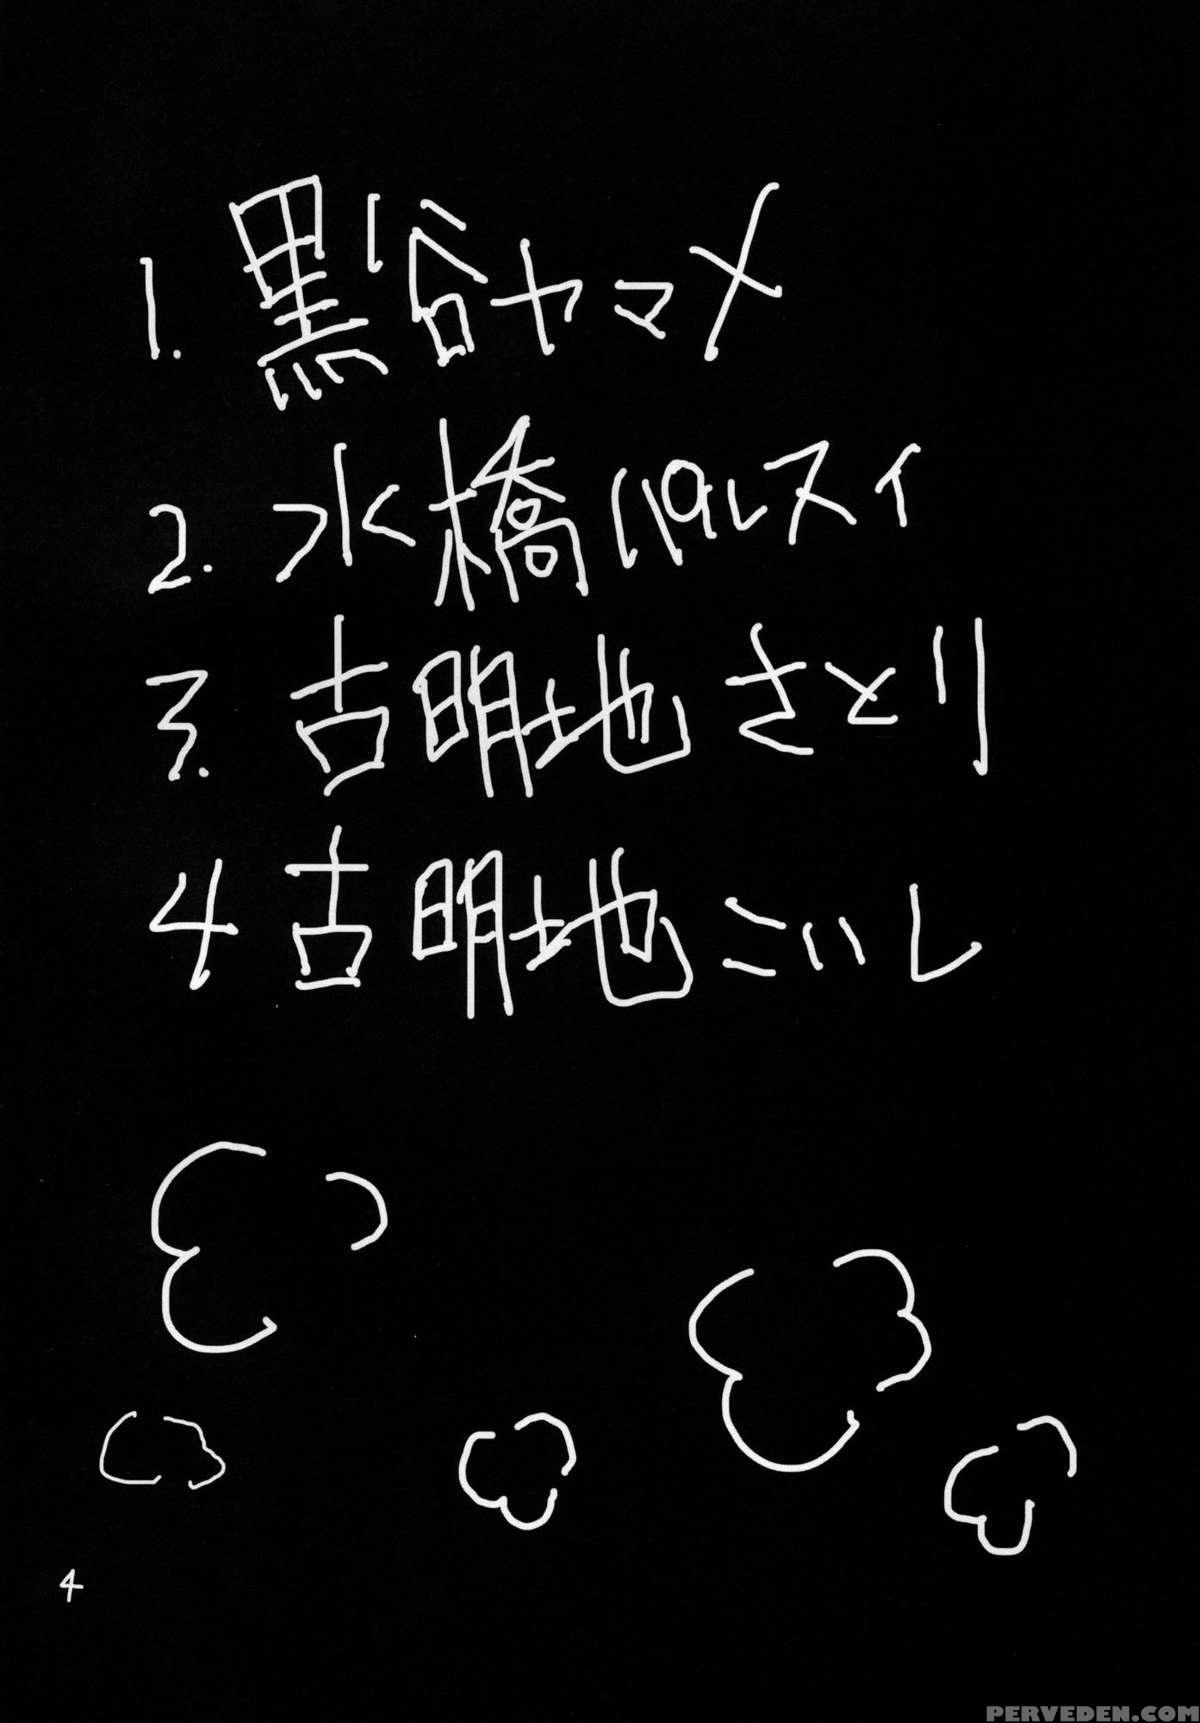 1. 黒谷ヤマメ
2. 水橋パルスィ
3. 古明地さとり
4 古明地こいし
4
PERVEDEN.COM